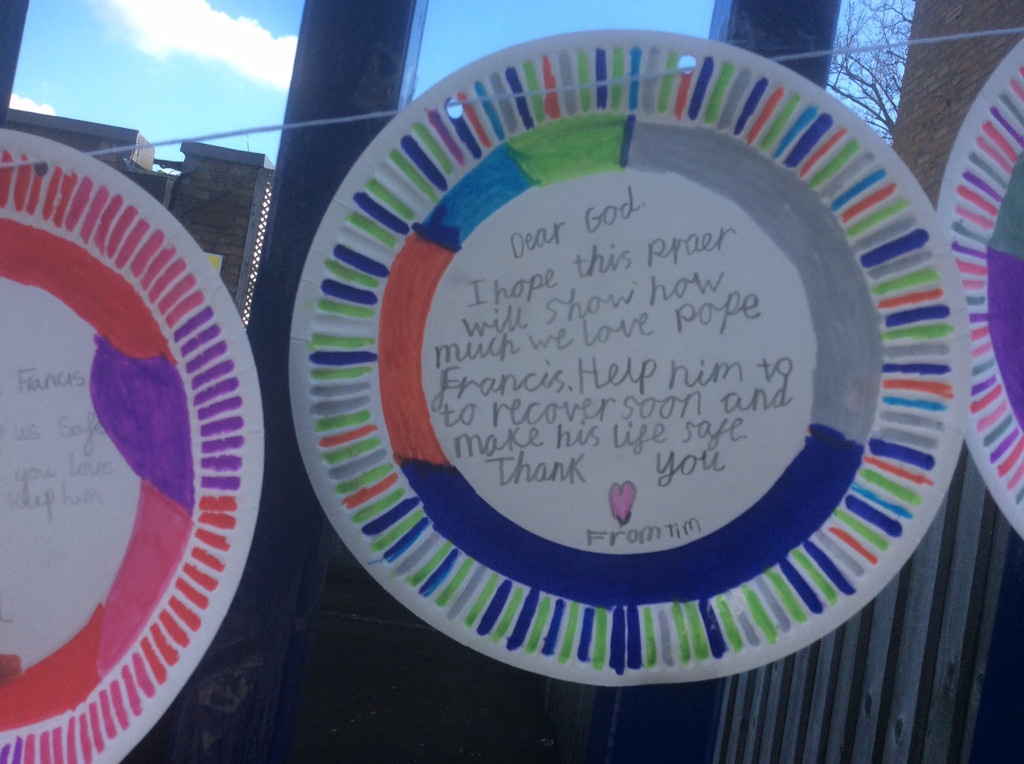 Francis
us safe
you love
keep him
Dear God.
I hope this praer
will show how
much we love pope
Francis. Help him to
to recover soon and
make his life safe.
Thank you
From tim